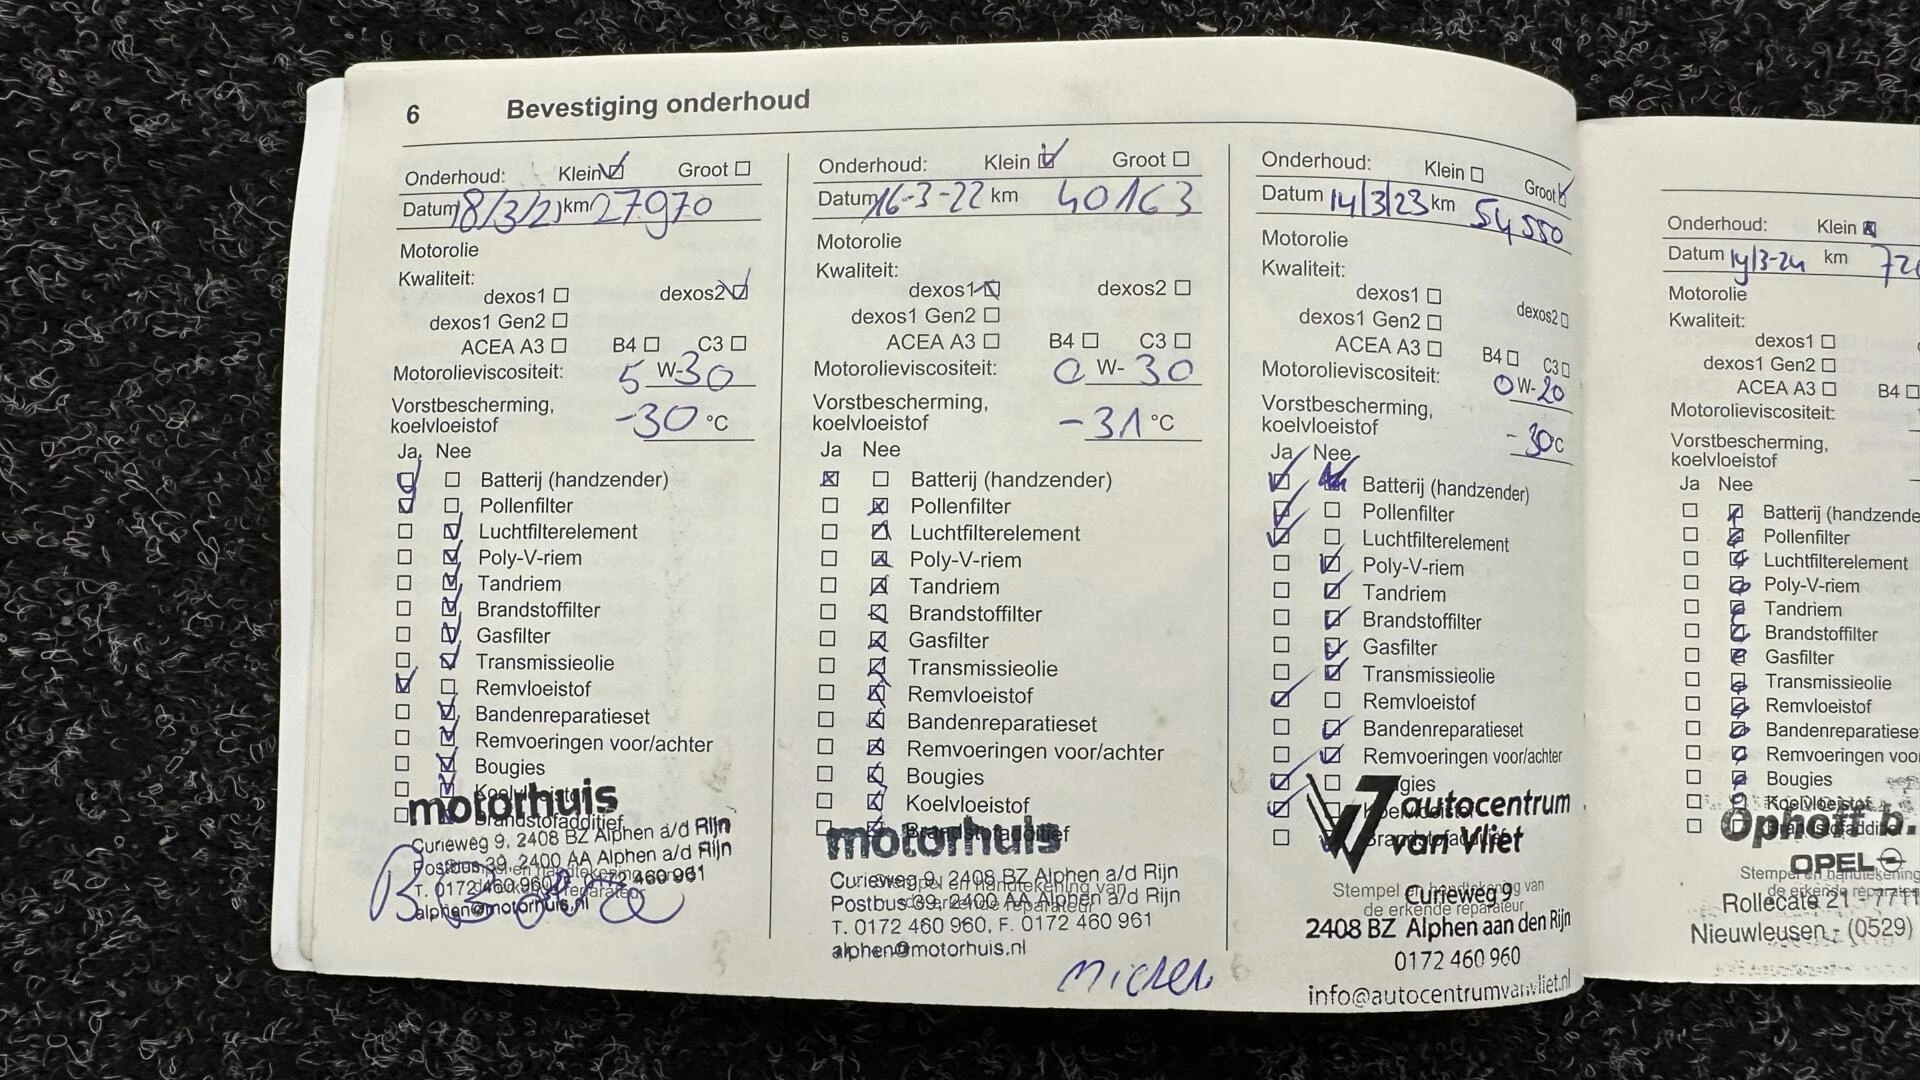 6 Bevestiging onderhoud
Onderhoud: Klein Groot
Datum 18/3/21 km 27970
Motorolie
Kwaliteit:
dexos1 dexos2
dexos1 Gen2
ACEA A3 B4 C3
Motorolieviscositeit: 5 W-30
Vorstbescherming,
koelvloeistof -30 °C
Ja Nee
Batterij (handzender)
Pollenfilter
Luchtfilterelement
Poly-V-riem
Tandriem
Brandstoffilter
Gasfilter
Transmissieolie
Remvloeistof
Bandenreparatieset
Remvoeringen voor/achter
Bougies
Koelvloeistof
Brandstofadditief
motorhuis
Curieweg 9, 2408 BZ Alphen a/d Rijn
Postbus 39, 2400 AA Alphen a/d Rijn
T. 0172 460 960, F. 0172 460 961
alphen@motorhuis.nl
Onderhoud: Klein Groot
Datum 16-3-22 km 40163
Motorolie
Kwaliteit:
dexos1 dexos2
dexos1 Gen2
ACEA A3 B4 C3
Motorolieviscositeit: 0 W-30
Vorstbescherming,
koelvloeistof -31 °C
Ja Nee
Batterij (handzender)
Pollenfilter
Luchtfilterelement
Poly-V-riem
Tandriem
Brandstoffilter
Gasfilter
Transmissieolie
Remvloeistof
Bandenreparatieset
Remvoeringen voor/achter
Bougies
Koelvloeistof
Brandstofadditief
motorhuis
Stempel en handtekening van
de erkende reparateur
Curieweg 9, 2408 BZ Alphen a/d Rijn
Postbus 39, 2400 AA Alphen a/d Rijn
T. 0172 460 960, F. 0172 460 961
alphen@motorhuis.nl
Onderhoud: Klein Groot
Datum 14/3/23 km 54550
Motorolie
Kwaliteit:
dexos1 dexos2
dexos1 Gen2
ACEA A3 B4 C3
Motorolieviscositeit: 0 W-20
Vorstbescherming,
koelvloeistof -30°C
Ja Nee
Batterij (handzender)
Pollenfilter
Luchtfilterelement
Poly-V-riem
Tandriem
Brandstoffilter
Gasfilter
Transmissieolie
Remvloeistof
Bandenreparatieset
Remvoeringen voor/achter
Bougies
Koelvloeistof
Brandstofadditief
autocentrum
van Vliet
Stempel en handtekening van
de erkende reparateur
Curieweg 9
2408 BZ Alphen aan den Rijn
0172 460 960
info@autocentrumvanvliet.nl
Onderhoud: Klein
Datum 14/3-24 km 72
Motorolie
Kwaliteit:
dexos1
dexos1 Gen2
ACEA A3 B4
Motorolieviscositeit:
Vorstbescherming,
koelvloeistof
Ja Nee
Batterij (handzende
Pollenfilter
Luchtfilterelement
Poly-V-riem
Tandriem
Brandstoffilter
Gasfilter
Transmissieolie
Remvloeistof
Bandenreparatiese
Remvoeringen voo
Bougies
Koelvloeistof
Brandstofadditi
Ophoff b.
OPEL
Stempel en handtekening
de erkende reparate
Rollecate 21 - 7711
Nieuwleusen - (0529)